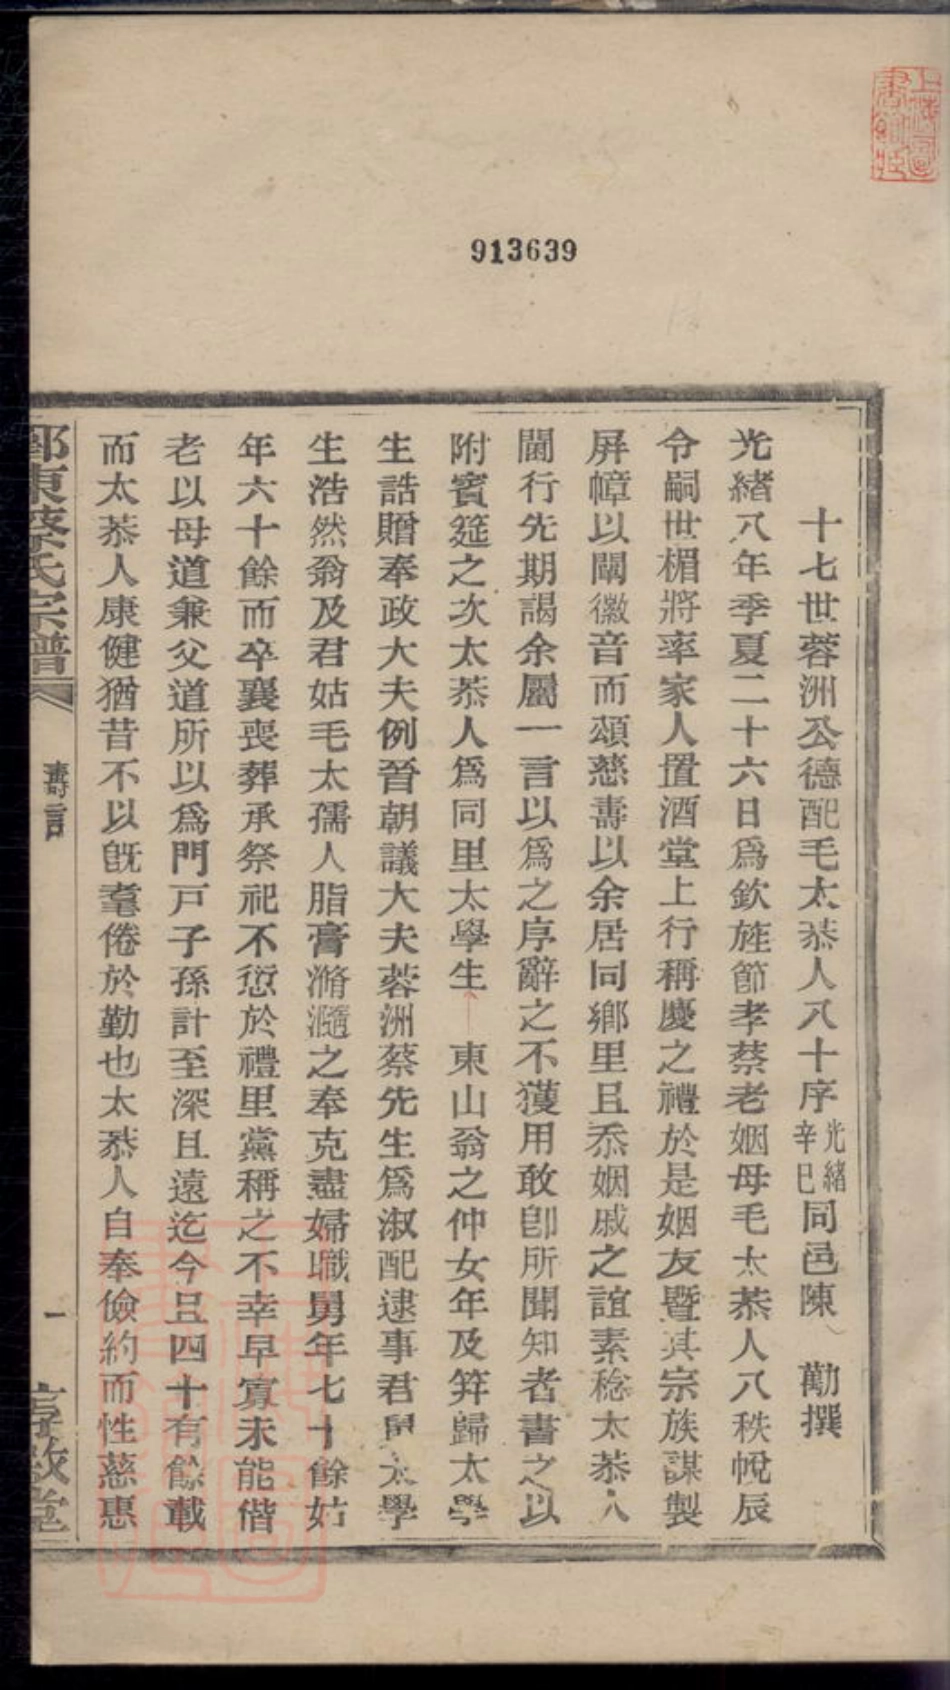 上海圖書館藏
913639
十七世蓉洲公德配毛太恭人八十序光緒辛巳同邑陳　勱撰
光緒八年季夏二十六日爲欽旌節孝蔡老姻母毛太恭人八秩帨辰
令嗣世楣將率家人置酒堂上行稱慶之禮於是姻友暨其宗族謀製
屏幛以闡徽音而頌慈壽以余居同鄉里且忝姻戚之誼素稔太恭人
閫行先期謁余屬一言以爲之序辭之不獲用敢卽所聞知者書之以
附賓筵之次太恭人爲同里太學生　東山翁之仲女年及笄歸太學
生誥贈奉政大夫例晉朝議大夫蓉洲蔡先生爲淑配逮事君舅太學
生浩然翁及君姑毛太孺人脂膏滫瀡之奉克盡婦職舅年七十餘姑
年六十餘而卒襄喪葬承祭祀不愆於禮里黨稱之不幸早寡未能偕
老以母道兼父道所以爲門戸子孫計至深且遠迄今且四十有餘載
而太恭人康健猶昔不以旣耄倦於勤也太恭人自奉儉約而性慈惠
鄞東蔡氏宗譜
壽言
一
享敘堂